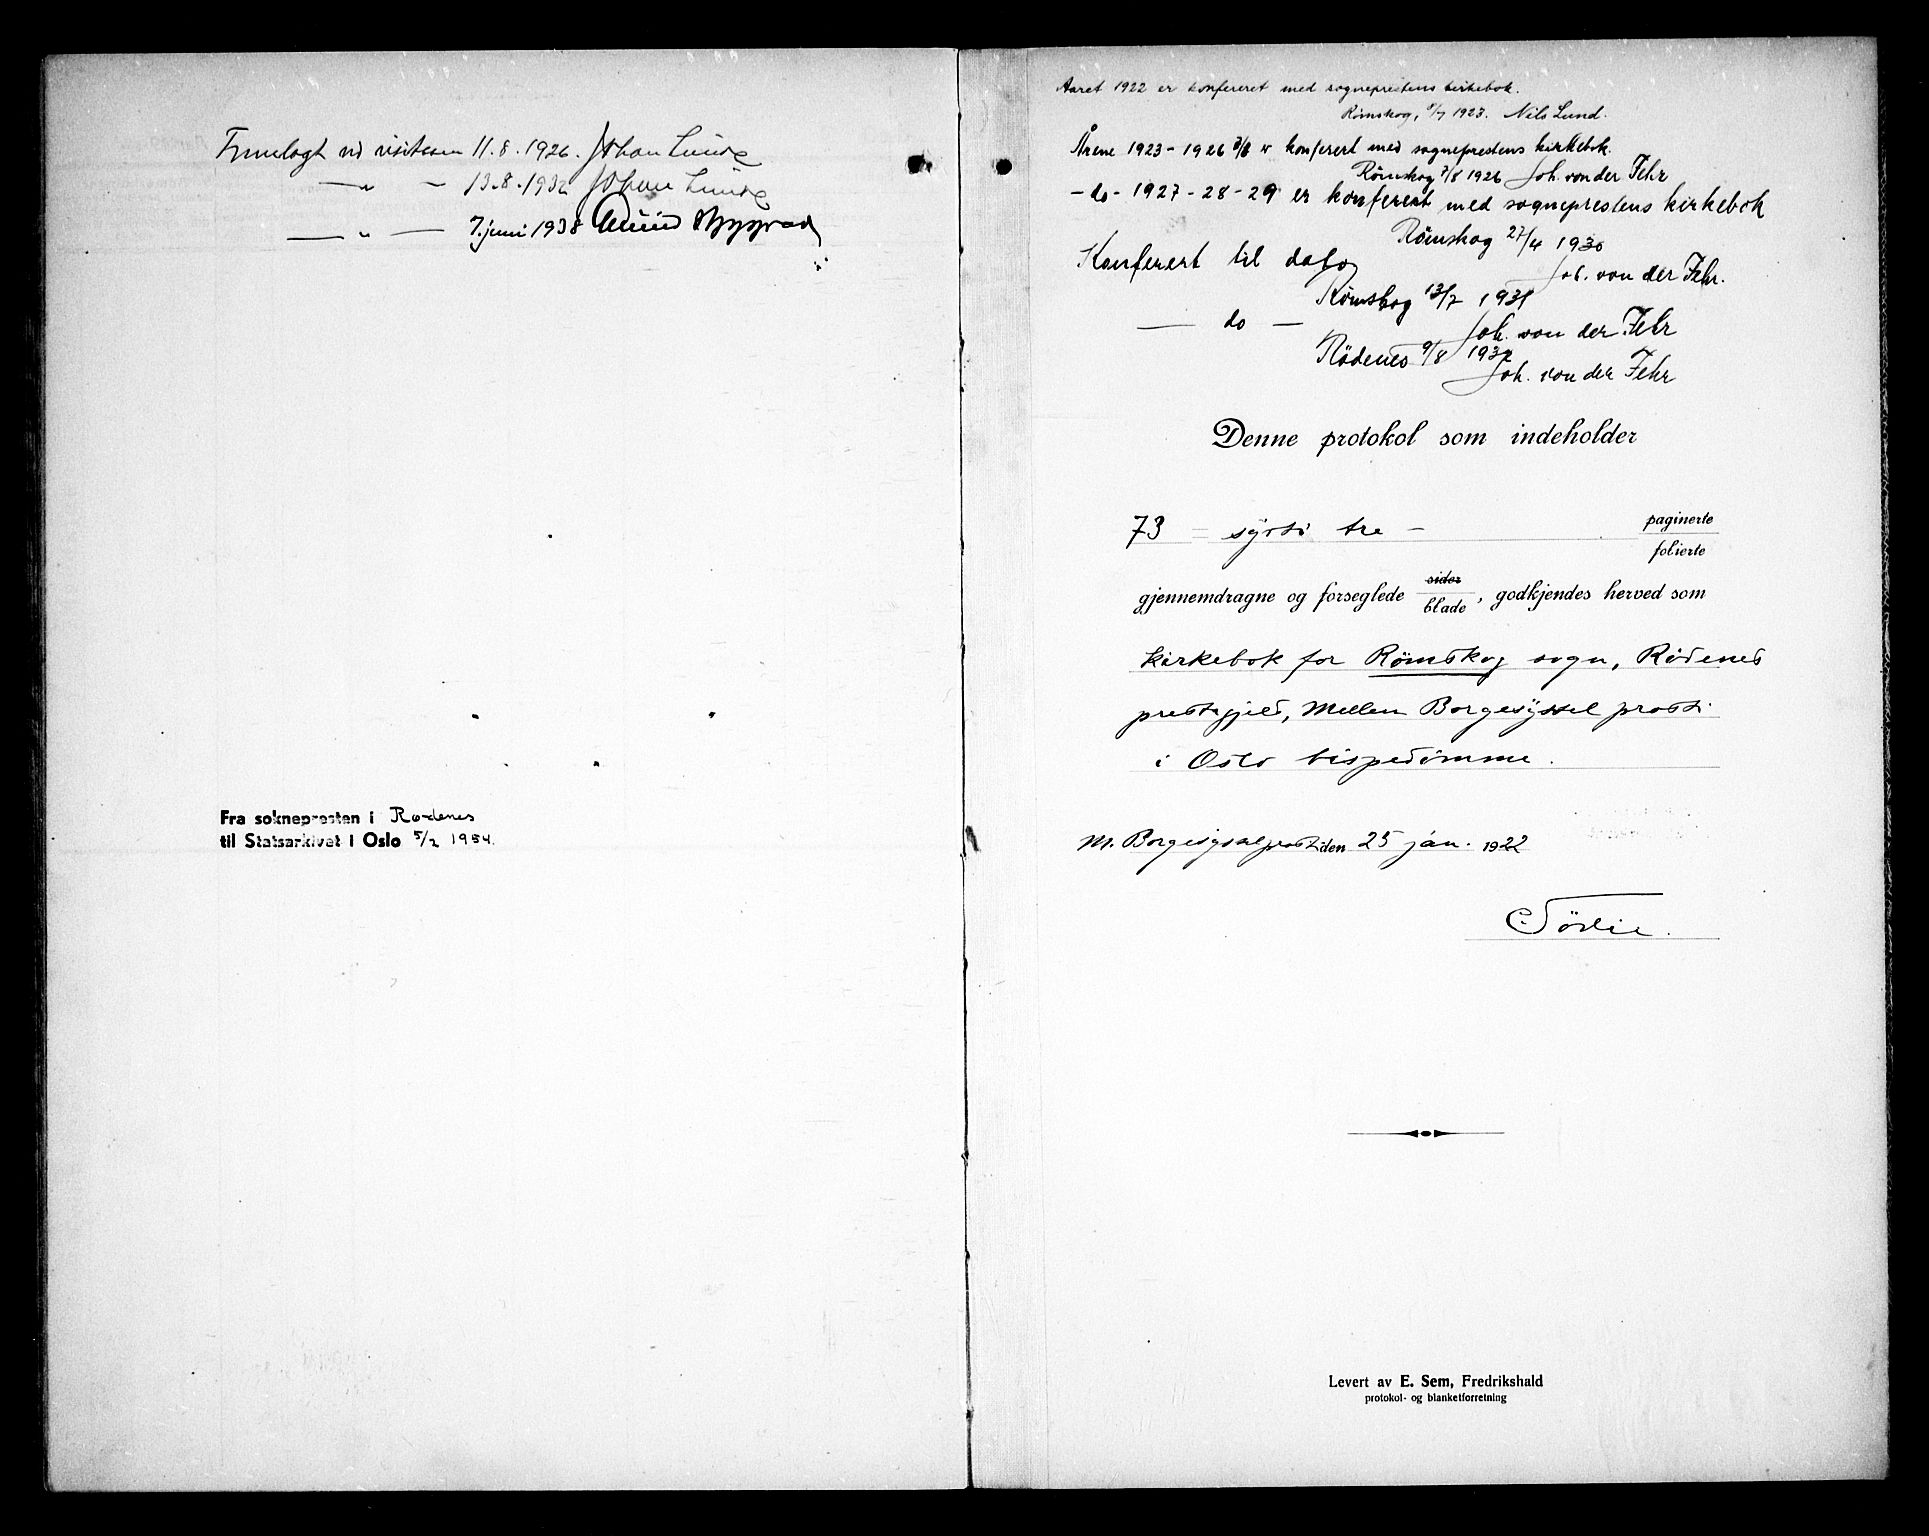 Fremlagt ved visitasen 11.8.1926. Johan Lunde
— " — 13.8.1932 Johan Lunde
— " — 7. juni 1938
Fra soknepresten i Rødenes
til Statsarkivet i Oslo 5/2 1954.
Aaret 1922 er konfereret med sogneprestens kirkebok.
Rømskog, 1923. Nils Lund.
Årene 1923 - 1926 er konferert med sogneprestens kirkebok.
Rømskog 7/8 1926 Joh. von der Fehr
- do - 1927 - 28 - 29 er konferert med sogneprestens kirkebok
Rømskog 27/4 1930
Joh. von der Fehr.
Konferert til dato
Rømskog 13/7 1931
Joh. von der Fehr
— do —
Rødenes 9/8 1932
Joh. von der Fehr
Denne protokol som indeholder
73 = sytti tre - paginerte
folierte
gjennemdragne og forseglede sider
blade, godkjendes herved som
kirkebok for Römskog sogn, Rödenes
prestegjeld, Mellem Borgesyssel prosti
i Oslo bispedömme.
M. Borgesyssel prosti den 25 jan. 1922
Levert av E. Sem, Fredrikshald
protokol- og blanketforretning